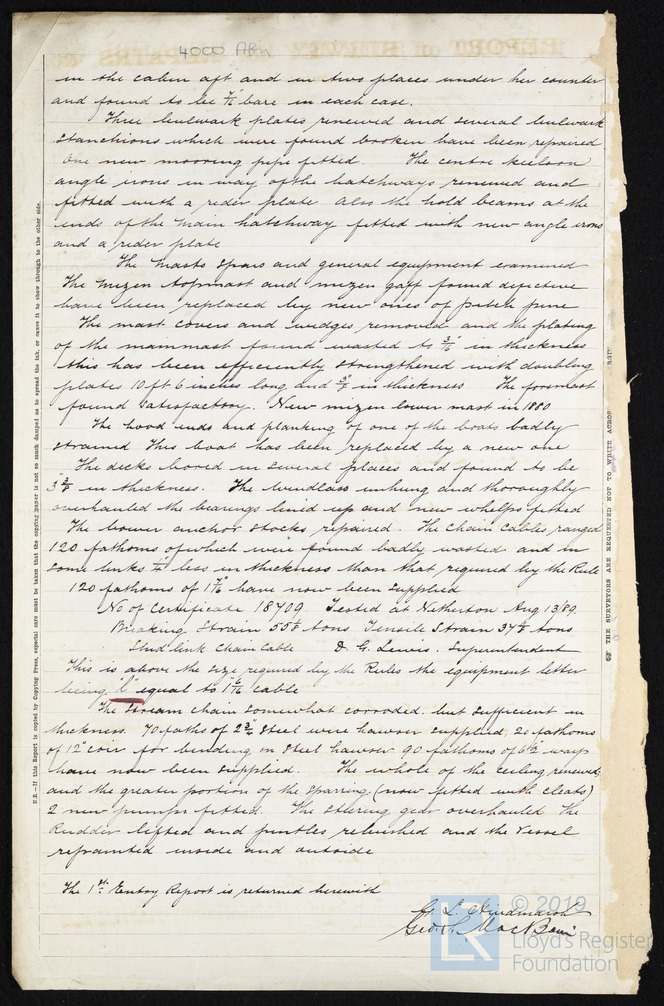 4000 ABn
in the cabin aft and in two places under her counter
and found to be 7/16" bare in each case.
Three bulwark plates renewed and several bulwark
stanchions which were found broken have been repaired
One new mooring pipe fitted. The centre keelson
angle irons in way of the hatchways renewed and
fitted with a rider plate Also the hold beams at the
ends of the Main hatchway fitted with new angle irons
and a rider plate
The Masts Spars and general equipment examined
The Mizen topmast and mizen gaff found defective
have been replaced by new ones of pitch pine
The mast covers and wedges removed and the plating
of the mainmast found wasted to in thickness
this has been efficiently strengthened with doubling
plates 10 ft 6 inches long and in thickness The foremast
found satisfactory. New mizen lower mast in 1880
The hood ends and planking of one of the boats badly
strained This boat has been replaced by a new one
The decks bored in several places and found to be
3 3/8" in thickness. The windlass unhung and thoroughly
overhauled the bearings lined up and new whelps fitted
The bower anchor stocks repaired. The chain cables ranged
120 fathoms of which were found badly wasted and in
some links less in thickness than that required by the Rule
120 fathoms of 1 7/16" have now been supplied
No of Certificate 18709 Tested at Netherton Aug 13/89
Breaking Strain 55 1/8 tons Tensile Strain 37 1/8 tons
Stud link Chain Cable D. G. Lewis. Superintendent
This is above the size required by the Rules the equipment letter
being "l" equal to 1 6/16" cable
The Stream Chain somewhat corroded but sufficient in
thickness. 70 faths of 2 3/4" Steel wire hawser supplied, 20 fathoms
of 12" coir for bending on steel hawser 90 fathoms of 6 1/2" warp
have now been supplied. The whole of the ceiling renewed
and the greater portion of the sparring (now fitted with cleats)
2 new pumps fitted. The steering gear overhauled The
Rudder lifted and pintles rebushed and the vessel
repainted inside and outside
The 1st Entry Report is returned herewith
G. L. Hindmarsh
Geo. S. MacBain
N.B.—If this Report is copied by Copying Press, especial care must be taken that the copying paper is not so much damped as to spread the ink, or cause it to show through to the other side.
THE SURVEYORS ARE REQUESTED NOT TO WRITE ACROS
© 2019
LR
Lloyd's Register
Foundation